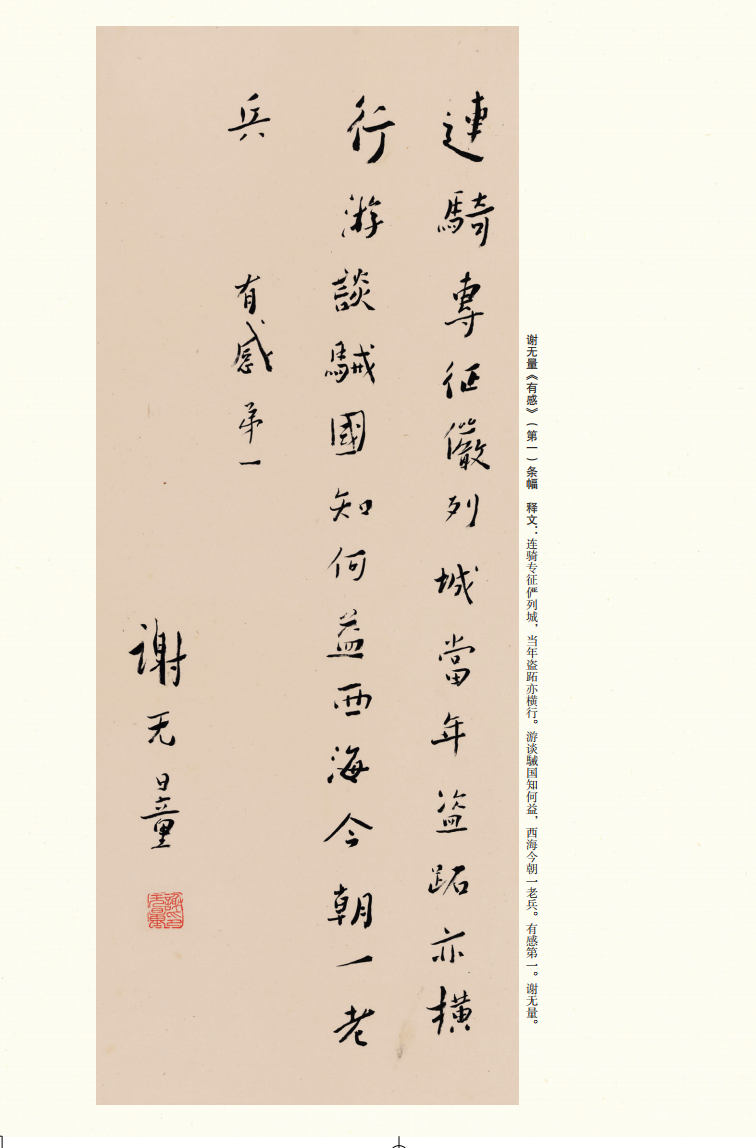 連騎專征儼列城當年盜跖亦橫
行游談駴國知何益西海今朝一老
兵
有感弟一
謝无量
谢无量《有感》（第一）条幅　释文：连骑专征俨列城，当年盗跖亦横行。游谈駴国知何益，西海今朝一老兵。有感第一。谢无量。